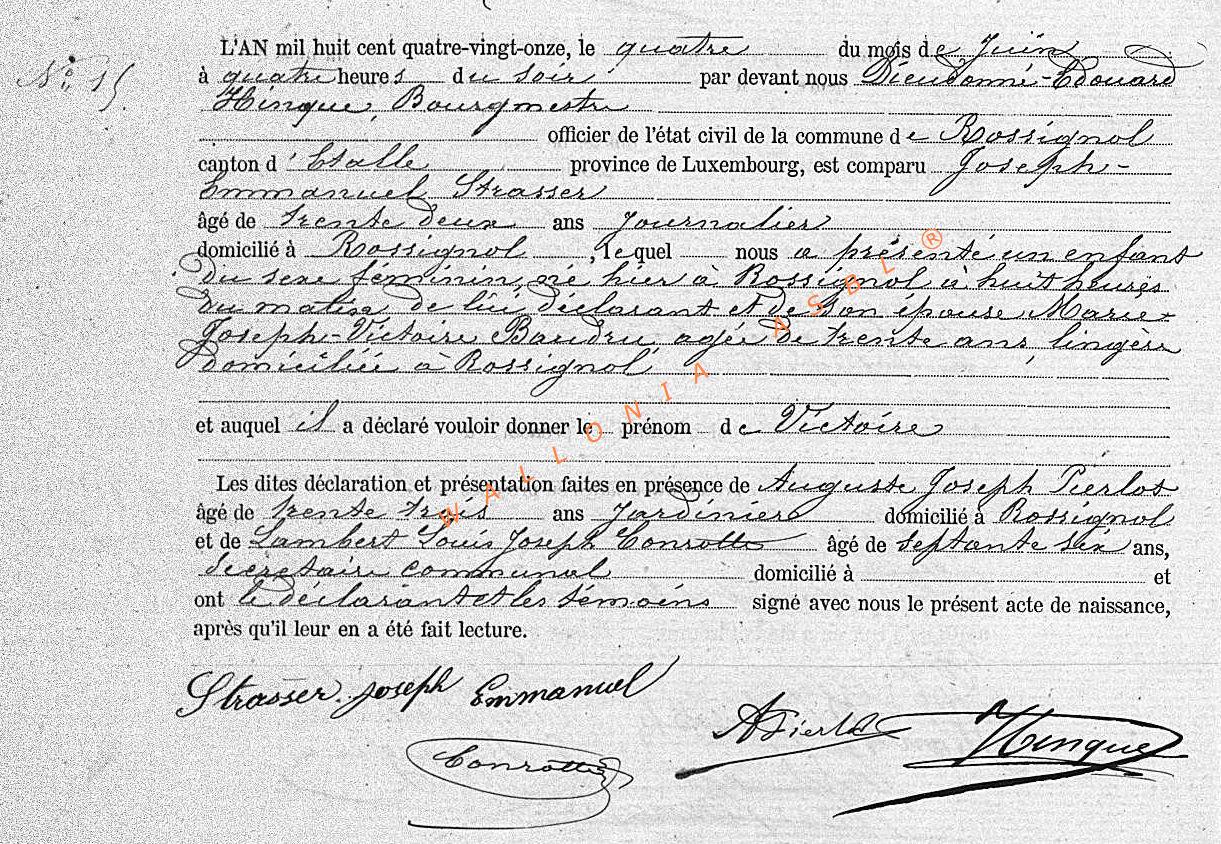 L'AN mil huit cent quatre-vingt-onze, le quatre du mois de Juin
Nº 15.
à quatre heures du soir par devant nous Dieudonné-Edouard
Hinque, Bourgmestre
officier de l'état civil de la commune de Rossignol
canton d'Etalle province de Luxembourg, est comparu Joseph-
Emmanuel Strasser
âgé de trente deux ans journalier
domicilié à Rossignol, lequel nous a présenté un enfant
du sexe féminin, né hier à Rossignol à huit heures
du matin de lui déclarant et de son épouse Marie-
Joseph-Victoire Baudru, agée de trente ans, lingère
domiciliée à Rossignol,
et auquel il a déclaré vouloir donner le prénom de Victoire
Les dites déclaration et présentation faites en présence de Auguste Joseph Pierlot
âgé de trente trois ans Jardinier domicilié à Rossignol
et de Lambert Louis Joseph Conrotte âgé de septante six ans,
Secrétaire communal domicilié à et
ont le déclarant et les témoins signé avec nous le présent acte de naissance,
après qu'il leur en a été fait lecture.
Strasser Joseph Emmanuel
APierlot
Hinque
Conrotte
WALLONIA ASBL ®